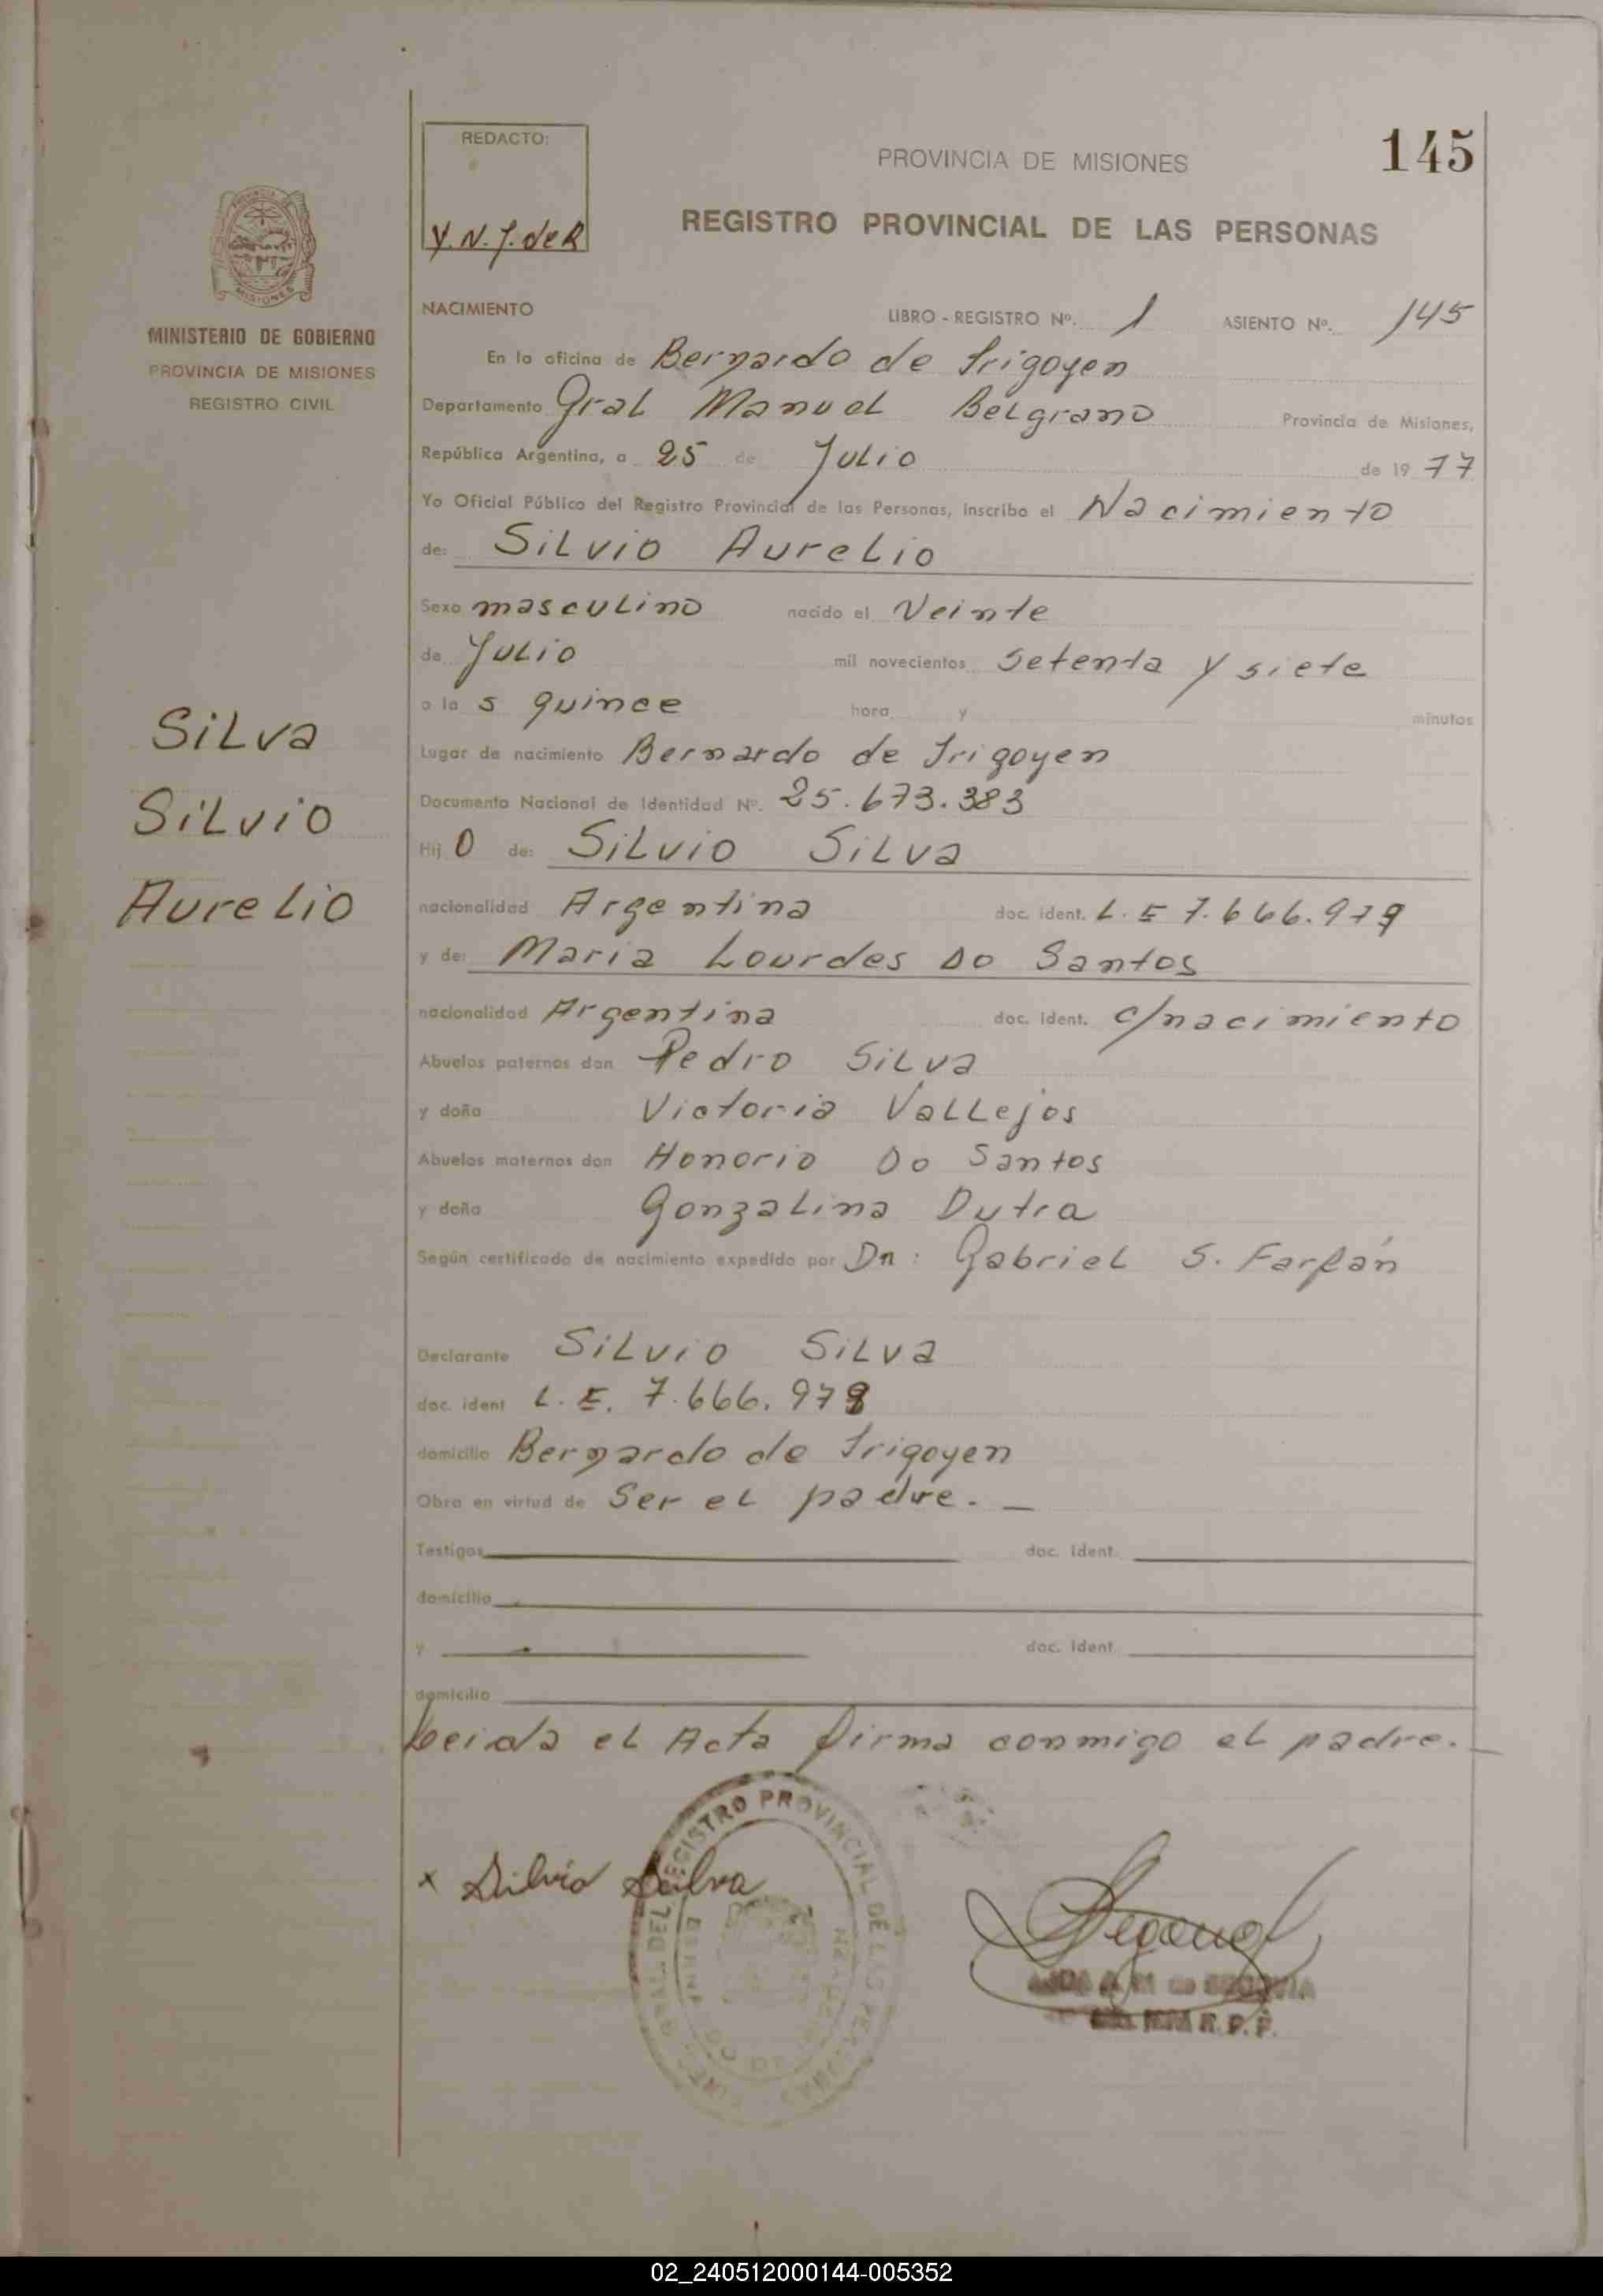 REDACTO:
Y.N.J. de R
PROVINCIA DE MISIONES
145
REGISTRO PROVINCIAL DE LAS PERSONAS
MISIONES
MINISTERIO DE GOBIERNO
PROVINCIA DE MISIONES
REGISTRO CIVIL
NACIMIENTO LIBRO - REGISTRO Nº. 1 ASIENTO Nº. 145
En la oficina de Bernardo de Irigoyen
Departamento Gral Manuel Belgrano Provincia de Misiones,
República Argentina, a 25 de Julio de 19 77
Yo Oficial Público del Registro Provincial de las Personas, inscribo el Nacimiento
de: Silvio Aurelio
Sexo masculino nacido el Veinte
de Julio mil novecientos setenta y siete
a la s quince hora y minutos
Silva
Silvio
Aurelio
Lugar de nacimiento Bernardo de Irigoyen
Documento Nacional de Identidad Nº. 25.673.383
Hij o de: Silvio Silva
nacionalidad Argentina doc. ident. L. E 7.666.979
y de: Maria Lourdes Do Santos
nacionalidad Argentina doc. ident. c/nacimiento
Abuelos paternos don Pedro Silva
y doña Victoria Vallejos
Abuelos maternos don Honorio Do Santos
y doña Gonzalina Dutra
Según certificado de nacimiento expedido por Dn: Gabriel S. Farfán
Declarante Silvio Silva
doc. ident L. E. 7.666.979
domicilio Bernardo de Irigoyen
Obra en virtud de Ser el padre. —
Testigos doc. ident.
domicilio
y doc. ident.
domicilio
Leida el Acta firma conmigo el padre. —
x Silvio Silva
REGISTRO PROVINCIAL DE LAS PERSONAS
de SEGOVIA
R. P. P.
02_240512000144-005352